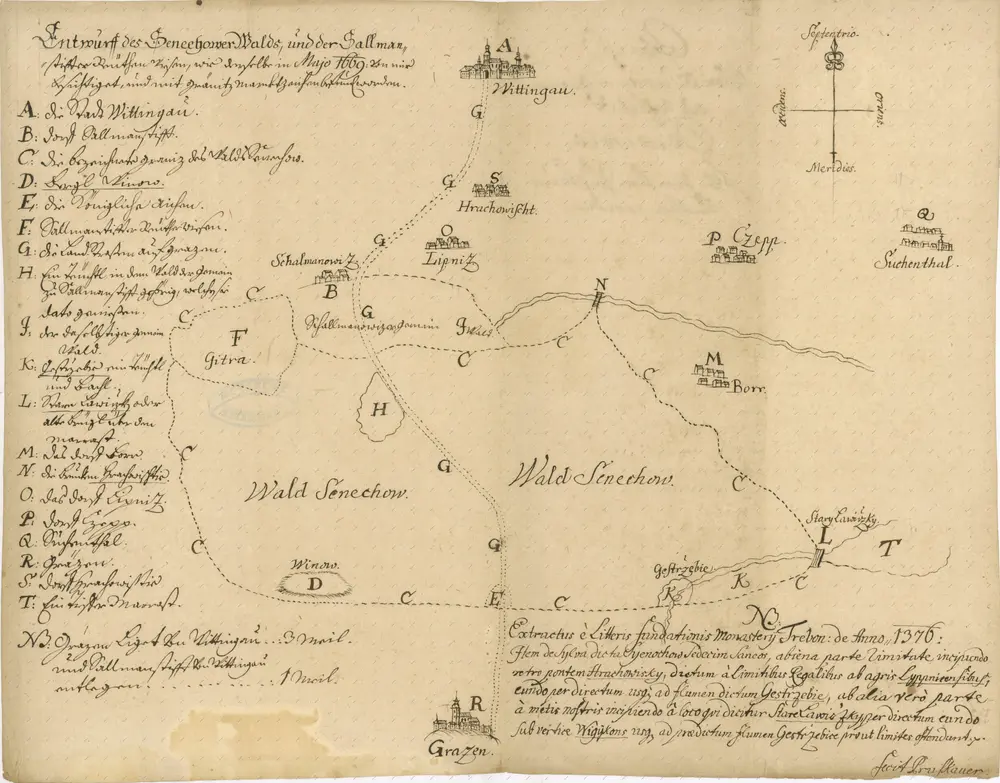 Entwurff des Senechower Walds, und der Sallman-
stiffter Reüthen Wisen, wie derselbe in Majo 1669. von mir
besichtiget, und mit gränitz
A: die Stadt Wittingau.
B: dorff Sallmanstifft.
C: die bezeichnete graniz des Walds Senechow.
D: Bergl Winow.
E: die Königliche Aichen.
F: Sallmanstiffter Reüthe Wisen.
G: die Land Strassen auf Grazen.
H: Ein Teüchtl in dem Wald der Gemein
zu Sallmanstifft gehörig, welche sie
dato geniessen.
J: der daselbstige gemein
Wald.
K: Gestrzebie ein Teüchtl
und Bachl.
L: Stare Lawiczky oder
alte brückl über den
Marrast.
M: das dorff Borr.
N: die brucken Hrachowisstie
O: das dorff Lipnitz.
P: dorff Czepp.
Q: Suchenthal.
R: Gräzen.
S: dorff Hrachowisstie
T: Ein tieffer Marrast.
NB: Gräzen liget von Wittingau ... 3 Meil.
und Sallmanstifft von Wittingau
entlegen ........... 1 Meil.
A
Wittingau.
Septentrio.
occidens.
oriens.
Meridies.
G
G
S
Hrachowischt.
G
O
Lipnitz
P Czepp.
Q
Suchenthal.
Schalmanowitz
B
N
C
C
G
F
Gitra.
Schallmanowizer Gemein
J Wald
C
C
M
Borr.
C
H
C
G
C
Wald Senechow.
Wald Senechow.
Stary Lawiczky.
L
T
C
G
Winow.
D
Gestrzebie
K
K
C
C
E
C
NB:
Extractus è Litteris fundationis Monastery Trebon: de Anno, 1376:
Item de Sylva dicta Gyenochow Sedecim Laneos, ab iena parte limitate incipiendo
retro pontem Hrachowisky, dictum à limitibus Regalibus ab agris Lypnicensibus,
eundo per directum usq, ad flumen dictum Gestrzebie, ab alia verò parte
à metis nostris incipiendo à loco qui dicitur Stare Lawiczky per directum eundo
sub vertice Wigykons usq, ad praedictum flumen Gestrzebice prout limites ostendunt
R
Grazen.
fecit